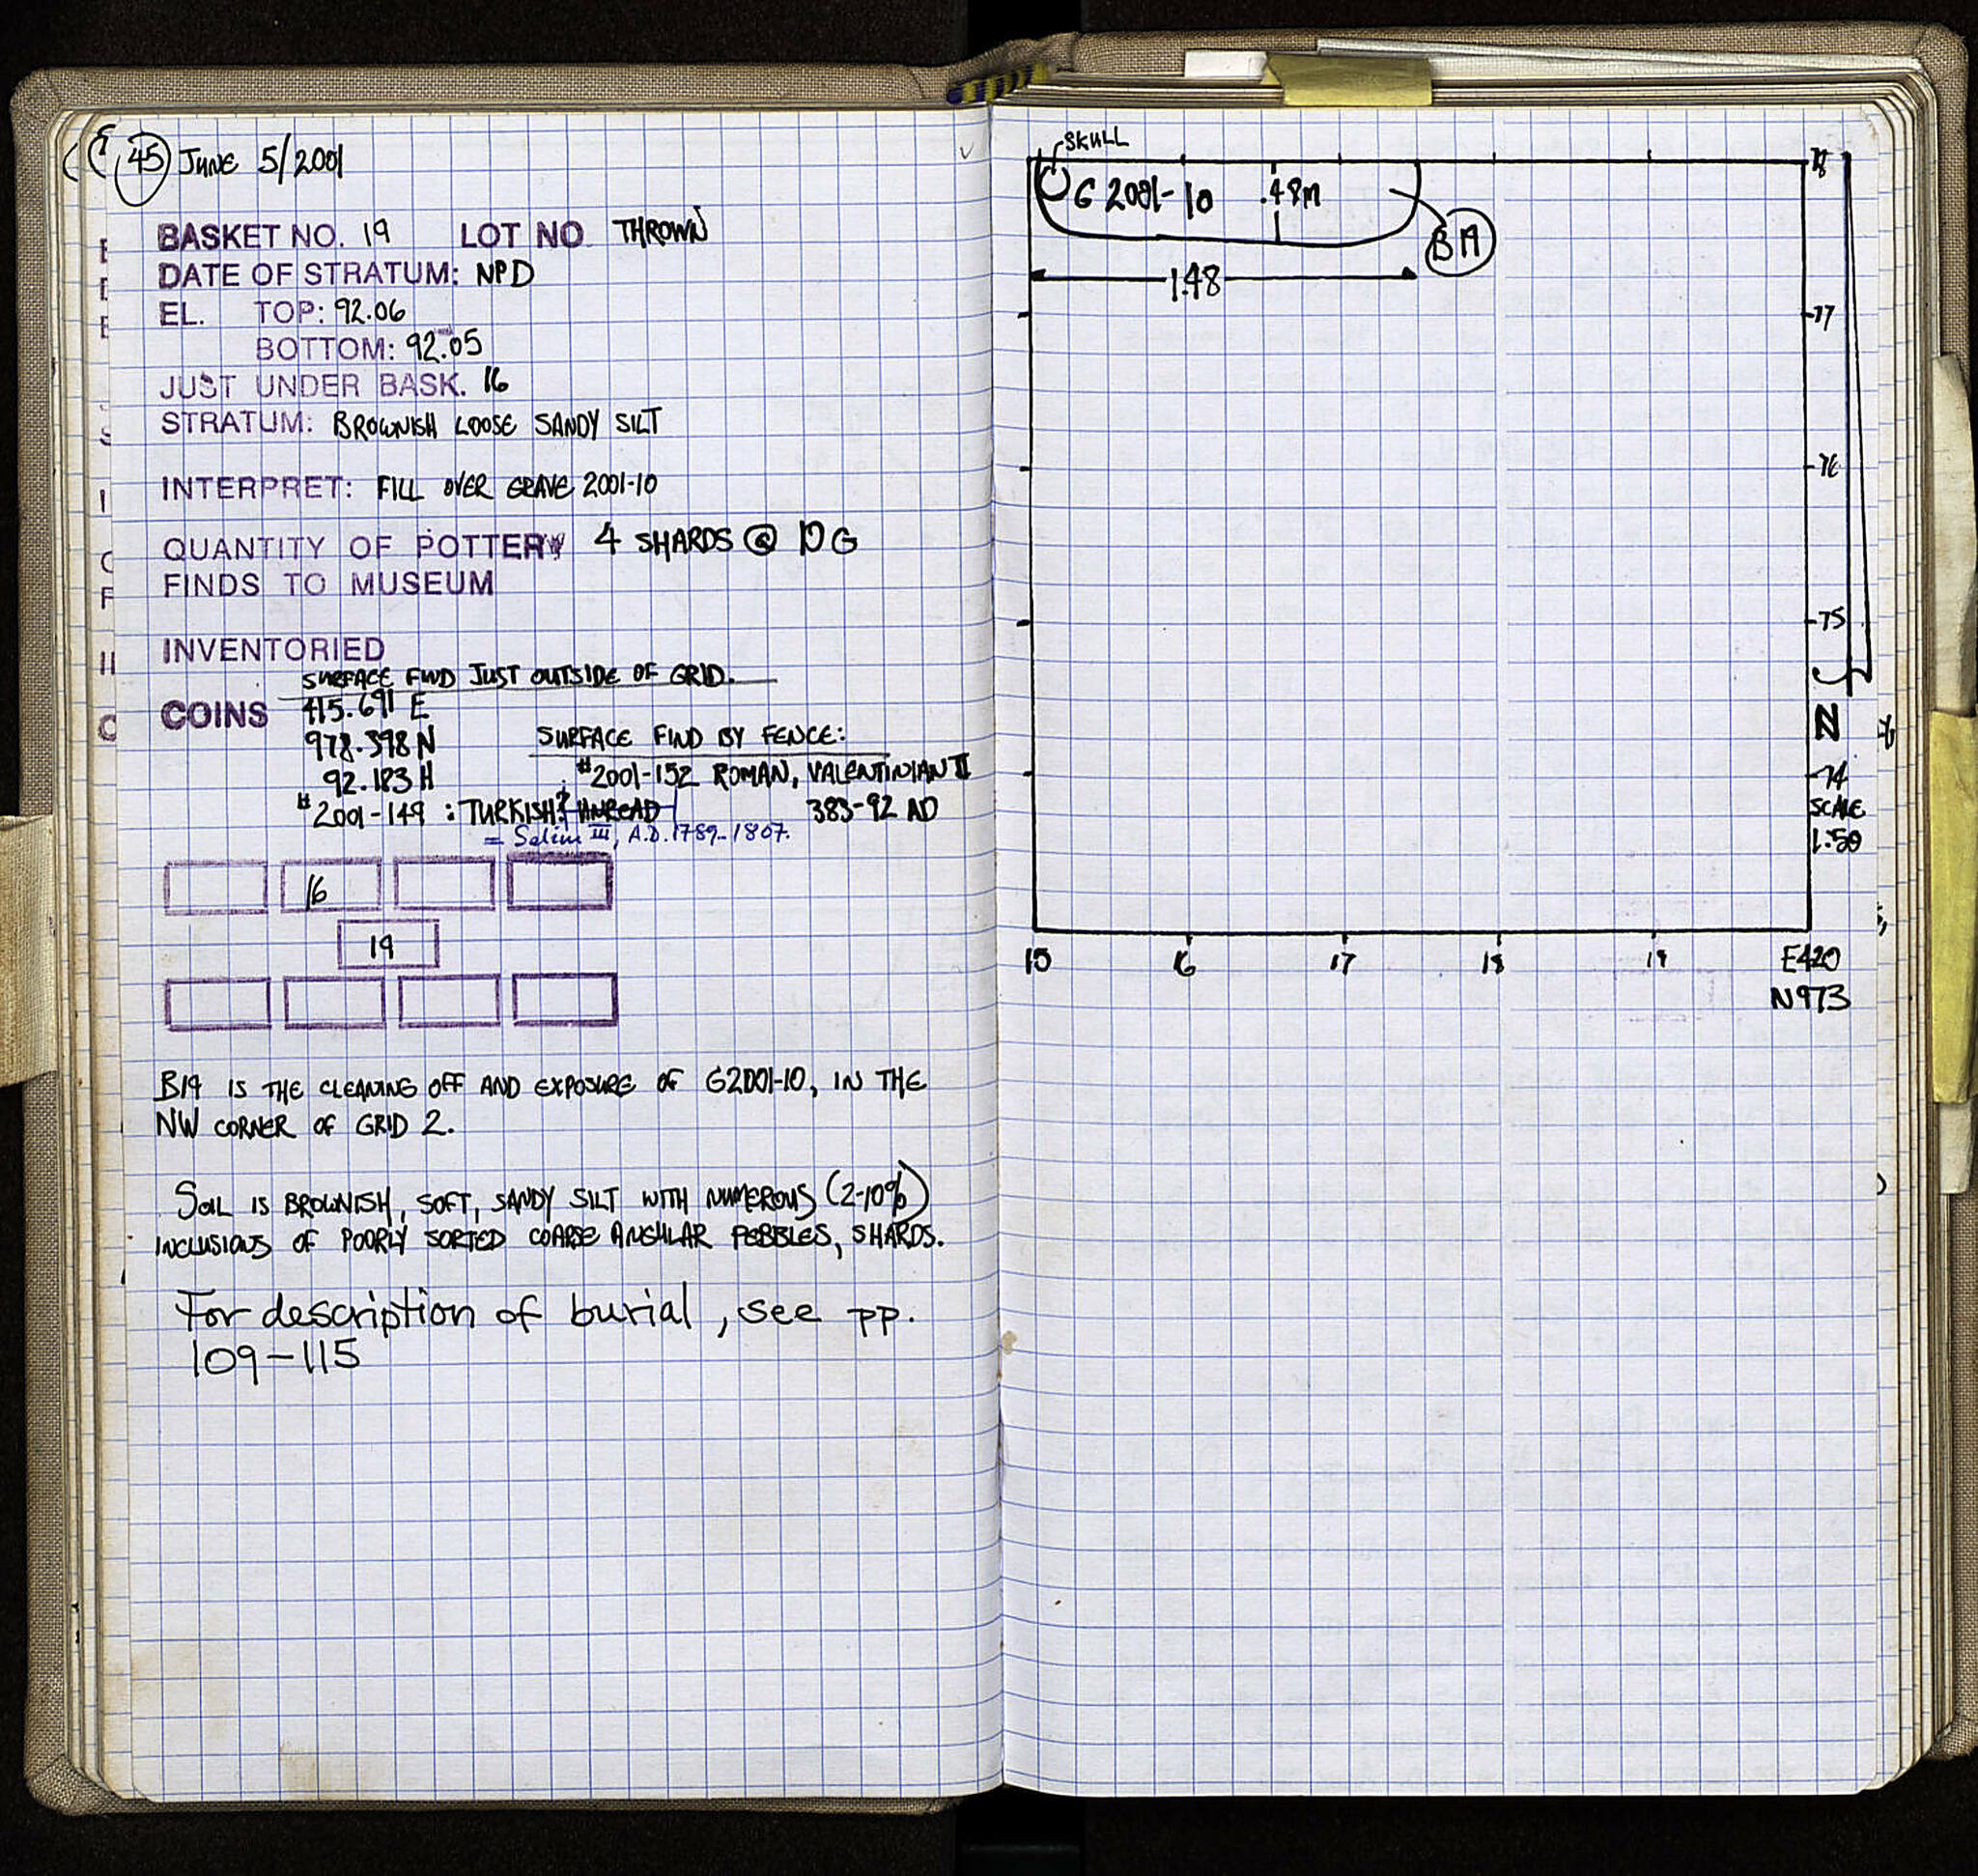 45 JUNE 5/2001
BASKET NO. 19 LOT NO. THROWN
DATE OF STRATUM: NPD
EL. TOP: 92.06
BOTTOM: 92.05
JUST UNDER BASK. 16
STRATUM: BROWNISH LOOSE SANDY SILT
INTERPRET: FILL OVER GRAVE 2001-10
QUANTITY OF POTTERY 4 SHARDS @ 10 G
FINDS TO MUSEUM
INVENTORIED
SURFACE FIND JUST OUTSIDE OF GRID.
COINS 415.691 E
978.398 N SURFACE FIND BY FENCE:
92.183 H #2001-152 ROMAN, VALENTINIAN II
#2001-149 : TURKISH? UNREAD 383-92 AD
= Selim III, A.D. 1789-1807.
16
19
B19 IS THE CLEANING OFF AND EXPOSURE OF G2001-10, IN THE
NW CORNER OF GRID 2.
SOIL IS BROWNISH, SOFT, SANDY SILT WITH NUMEROUS (2-10%)
INCLUSIONS OF POORLY SORTED COARSE ANGULAR PEBBLES, SHARDS.
For description of burial, see pp.
109-115
SKULL
G 2001-10 .48M
B19
1.48
78
77
76
75
N
74
SCALE
1:50
15 16 17 18 19 E420
N973